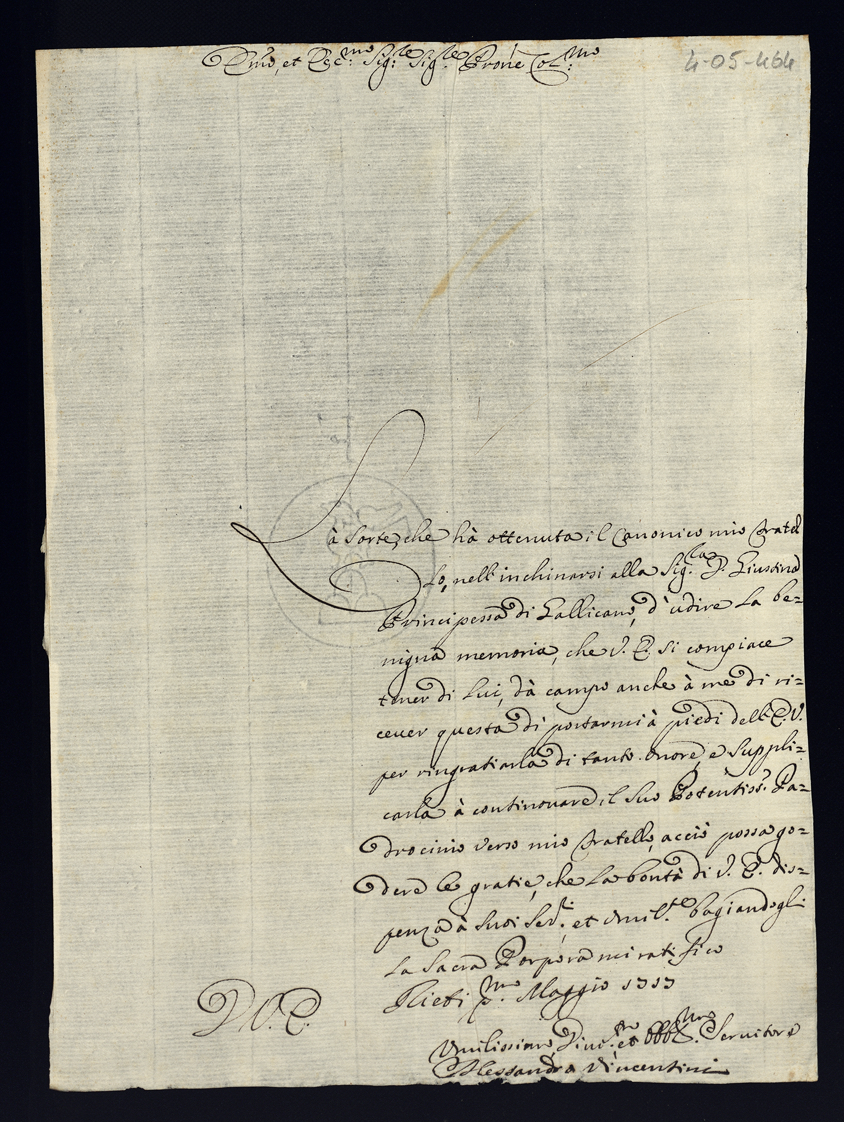 Emo, et Rec:mo Sig:re Sig:re Prone Col:mo
4-05-464
La Sorte, che hà ottenuta il Canonico mio Fratel
lo, nell'inchinarsi alla Sig:ra D. Giustina
Principessa di Gallicano, d'udire la be=
nigna memoria, che V. E. si compiace
tener di lui, dà campo anche à me di ri=
cever questa di portarmi à piedi dell'E. V.
per ringratiarla di tanto onore, e suppli=
carla à continovare il suo Potentiss:o Pa=
drocinio verso mio Fratello, acciò possa go=
dere le gratie, che la bontà di V. E. dis=
penza à suoi Ser:i, et umil:te bagiandogli
la Sacra Porpora mi ratifico
Rieti p:mo Maggio 1717
D. V. E.
Umilissimo, Div:mo et Obbl:mo Servitore
Alessandro Vincentini